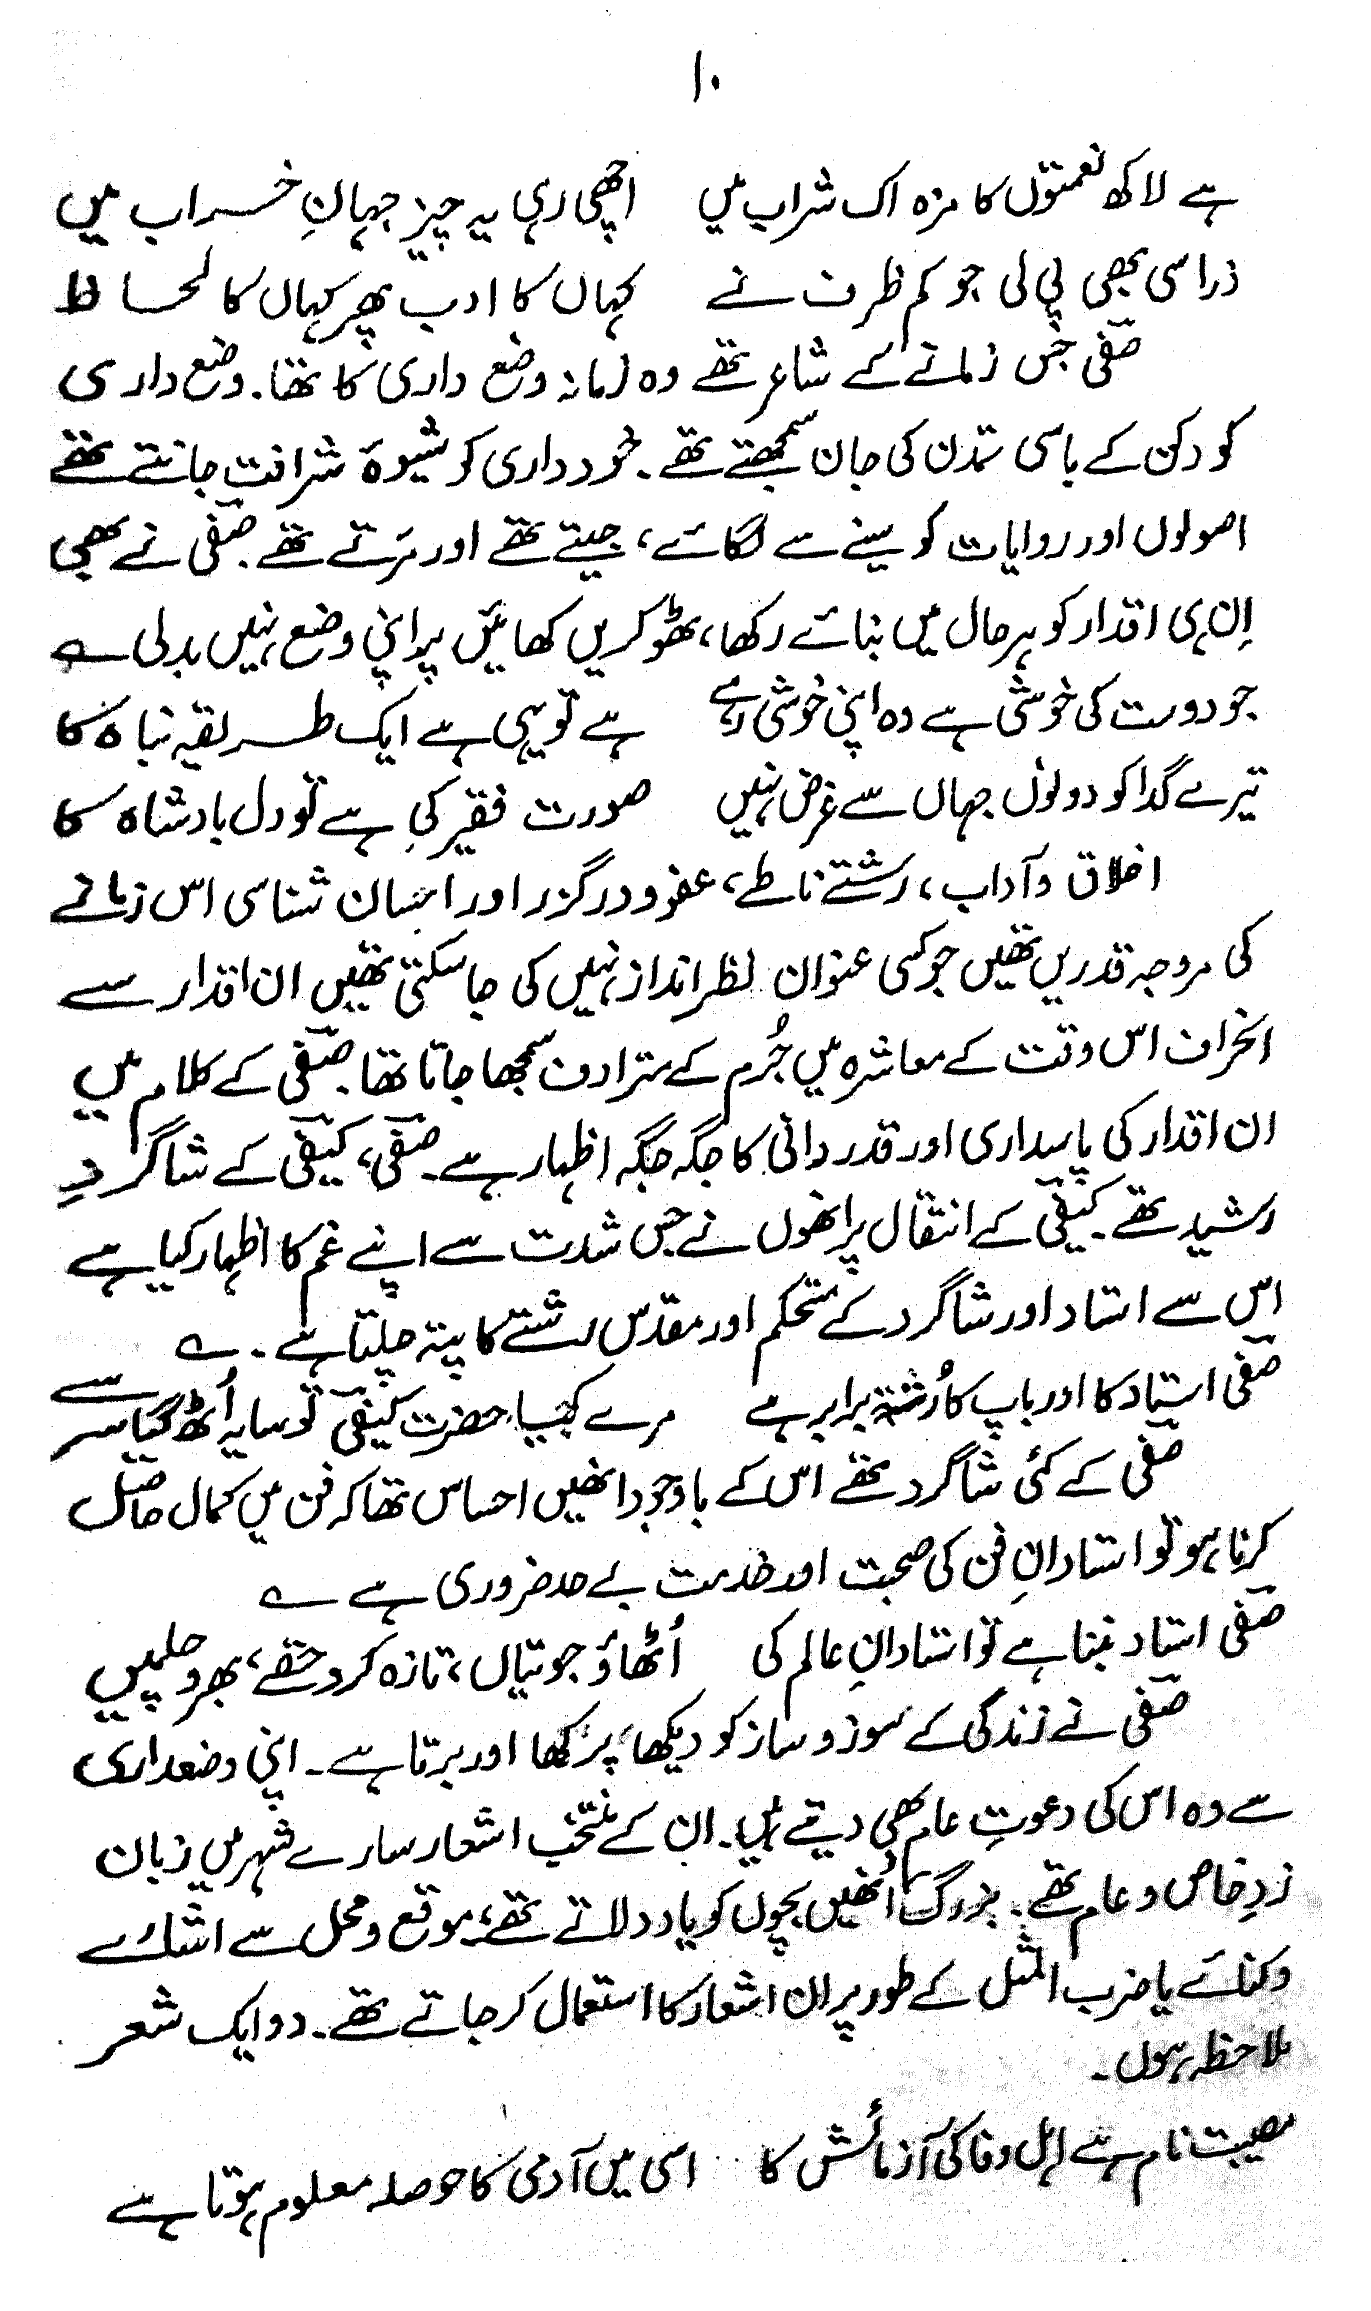 ۱۰
ہے لاکھ نعمتوں کا مزہ اک شراب میں اچھی رہی یہ چیز جہانِ خراب میں
ذرا سی بھی پی لی جو کم ظرف نے کہاں کا ادب پھر کہاں کا لحاظ
صفی جس زمانے کے شاعر تھے وہ زمانہ وضع داری کا تھا۔ وضع داری
کو دکن کے باسی تمدن کی جان سمجھتے تھے۔ خود داری کو شیوۂ شرافت جانتے تھے
اصولوں اور روایات کو سینے سے لگائے، جیتے تھے اور مرتے تھے۔ صفی نے بھی
اِن ہی اقدار کو ہر حال میں بنائے رکھا، ٹھوکریں کھائیں پر اپنی وضع نہیں بدلی ؎
جو دوست کی خوشی ہے وہ اپنی خوشی رہے ہے تو یہی ہے ایک طریقہ نباہ کا
تیرے گدا کو دونوں جہاں سے غرض نہیں صورت فقیر کی ہے تو دل بادشاہ کا
اخلاق و آداب، رشتے ناطے، عفو و درگزر اور انسان شناسی اس زمانے
کی مروجہ قدریں تھیں جو کسی عنوان نظر انداز نہیں کی جا سکتی تھیں ان اقدار سے
انحراف اس وقت کے معاشرہ میں جُرم کے مترادف سمجھا جاتا تھا۔ صفی کے کلام میں
ان اقدار کی پاسداری اور قدر دانی کا جگہ جگہ اظہار ہے۔ صفی، کیفی کے شاگردِ
رشید تھے۔ کیفی کے انتقال پر انھوں نے جس شدت سے اپنے غم کا اظہار کیا ہے
اس سے استاد اور شاگرد کے مستحکم اور مقدس رشتے کا پتہ چلتا ہے۔ ؎
صفی استاد کا اور باپ کا رُشتہ برابر ہے مرے کہیا حضرت کیفی تو سایہ اُٹھ گیا سر سے
صفی کے کئی شاگرد تھے اس کے باوجود انھیں احساس تھا کہ فن میں کمال حاصل
کرنا ہو تو استادانِ فن کی صحبت اور خدمت بے حد ضروری ہے ؎
صفی استاد بننا ہے تو استادانِ عالم کی اُٹھاؤ جوتیاں، تازہ کرو حقے، بھرو چلمیں
صفی نے زندگی کے سوز و ساز کو دیکھا، پرکھا اور برتا ہے۔ اپنی وضعداری
سے وہ اس کی دعوتِ عام بھی دیتے ہیں۔ ان کے منتخب اشعار سارے شہر میں زبان
زدِ خاص و عام تھے۔ بزرگ اُنھیں بچوں کو یاد دلاتے تھے، موقع و محل سے اشارے
و کنائے یا ضرب المثل کے طور پر ان اشعار کا استعمال کر جاتے تھے۔ دو ایک شعر
ملاحظہ ہوں۔
مصیبت نام ہے اہل وفا کی آزمائش کا اسی میں آدمی کا حوصلہ معلوم ہوتا ہے